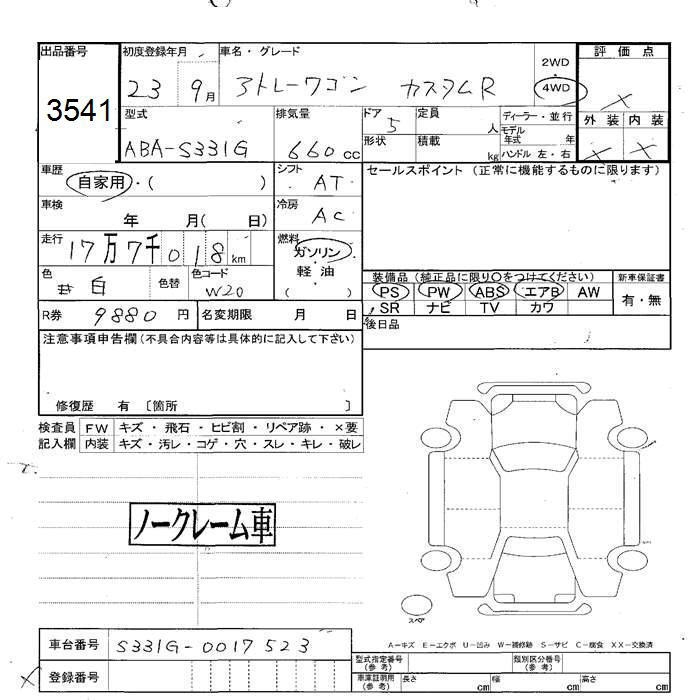 出品番号
3541
初度登録年月
23 9月
車名・グレード
アトレーワゴン カスタムR
2WD
4WD
評価点
×
外装 内装
× ×
型式
ABA-S331G
排気量
660cc
ドア
5
形状
定員
人
積載
kg
ディーラー・並行
モデル年式 年
ハンドル 左・右
車歴
自家用・( )
シフト
AT
セールスポイント(正常に機能するものに限ります)
車検
年 月( 日)
冷房
AC
走行
17万7千018km
燃料
ガソリン
・
軽油
・
( )
色
白
色替
色コード
W20
装備品(純正品に限り○をつけてください)
PS PW ABS エアB AW
SR ナビ TV カワ
新車保証書
有・無
R券 9880円
名変期限 月 日
後日品
注意事項申告欄(不具合内容等は具体的に記入して下さい)
修復歴 有 〔箇所 〕
検査員記入欄
FW キズ・飛石・ヒビ割・リペア跡・×要
内装 キズ・汚レ・コゲ・穴・スレ・キレ・破レ
ノークレーム車
スペア
A-キズ E-エクボ U-凹み W-補修跡 S-サビ C-腐食 XX-交換済
車台番号 S331G-0017523
登録番号
型式指定番号(参考)
類別区分番号(参考)
車庫証明用(参考) 長さ cm 幅 cm 高さ cm